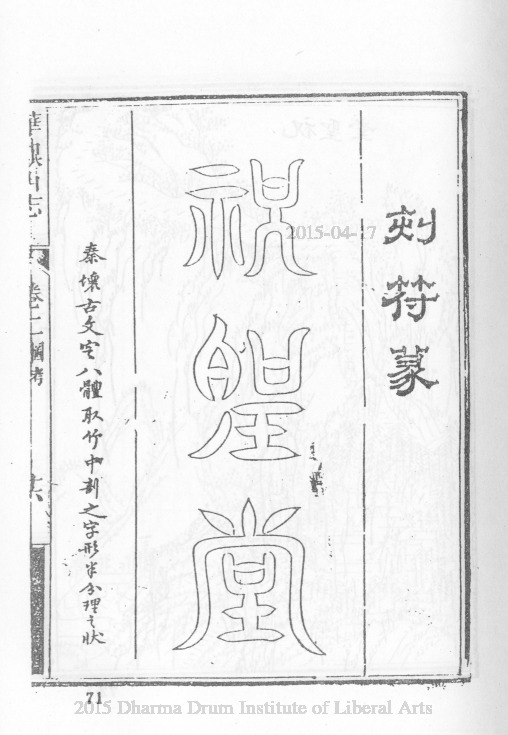 刻符篆
祝聖堂
秦壞古文定八體取竹中剖之字形半分理之狀
卷二
71
2015-04-17
2015 Dharma Drum Institute of Liberal Arts